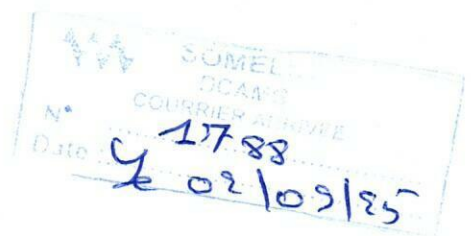 SOMEL
COURRIER ARRIVÉE
N° 1788
Date Le 02/09/25